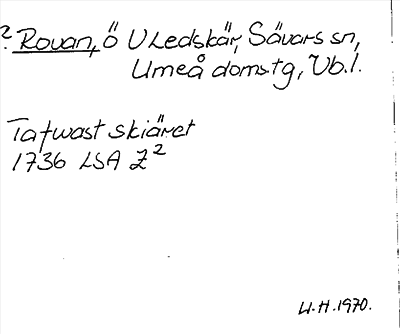 ? Rovan, ö V Ledskär, Sävars sn,
Umeå domstg, Vb.l.
Tafwast skiäret
1736 LSA Z²
U.H.1970.